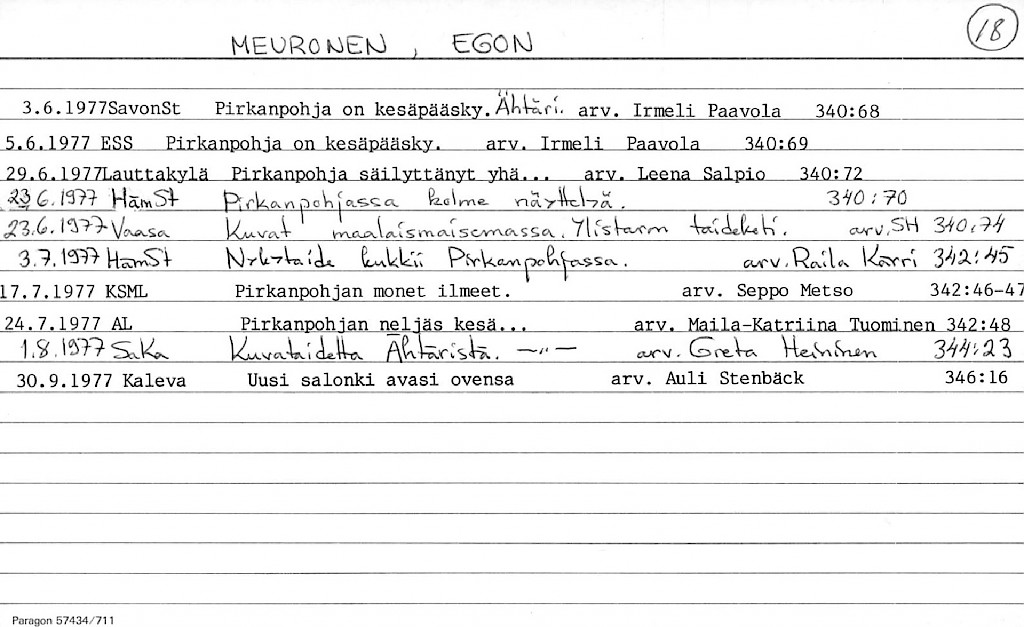 MEURONEN, EGON
18
3.6.1977SavonSt Pirkanpohja on kesäpääsky. Ähtäri. arv. Irmeli Paavola 340:68
5.6.1977 ESS Pirkanpohja on kesäpääsky. arv. Irmeli Paavola 340:69
29.6.1977Lauttakylä Pirkanpohja säilyttänyt yhä... arv. Leena Salpio 340:72
23.6.1977 HämSt Pirkanpohjassa kolme näyttelyä. 340:70
23.6.1977 Vaasa Kuvat maalaismaisemassa. Ylistaron taideketi. arv. SH 340:74
3.7.1977 HämSt Nykytaide kukkii Pirkanpohjassa. arv. Raila Karri 342:45
17.7.1977 KSML Pirkanpohjan monet ilmeet. arv. Seppo Metso 342:46-47
24.7.1977 AL Pirkanpohjan neljäs kesä... arv. Maila-Katriina Tuominen 342:48
1.8.1977 SaKa Kuvataidetta Ähtäristä. —"— arv. Greta Heininen 344:23
30.9.1977 Kaleva Uusi salonki avasi ovensa arv. Auli Stenbäck 346:16
Paragon 57434/711